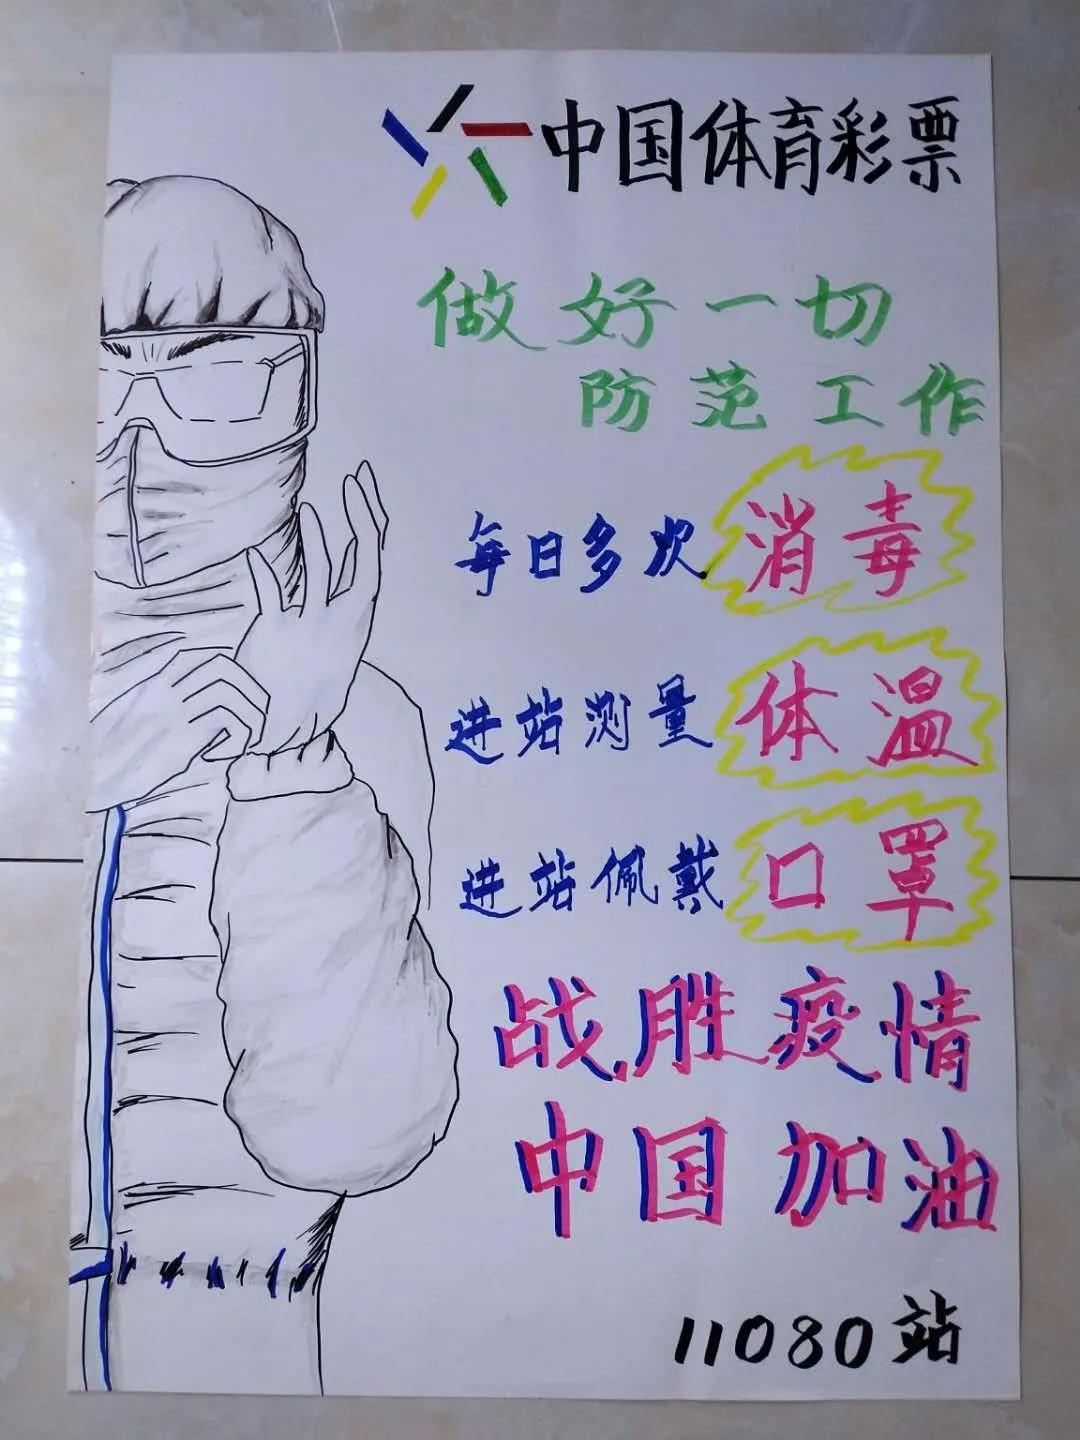 中国体育彩票
做好一切
防范工作
每日多次消毒
进站测量体温
进站佩戴口罩
战胜疫情
中国加油
11080站